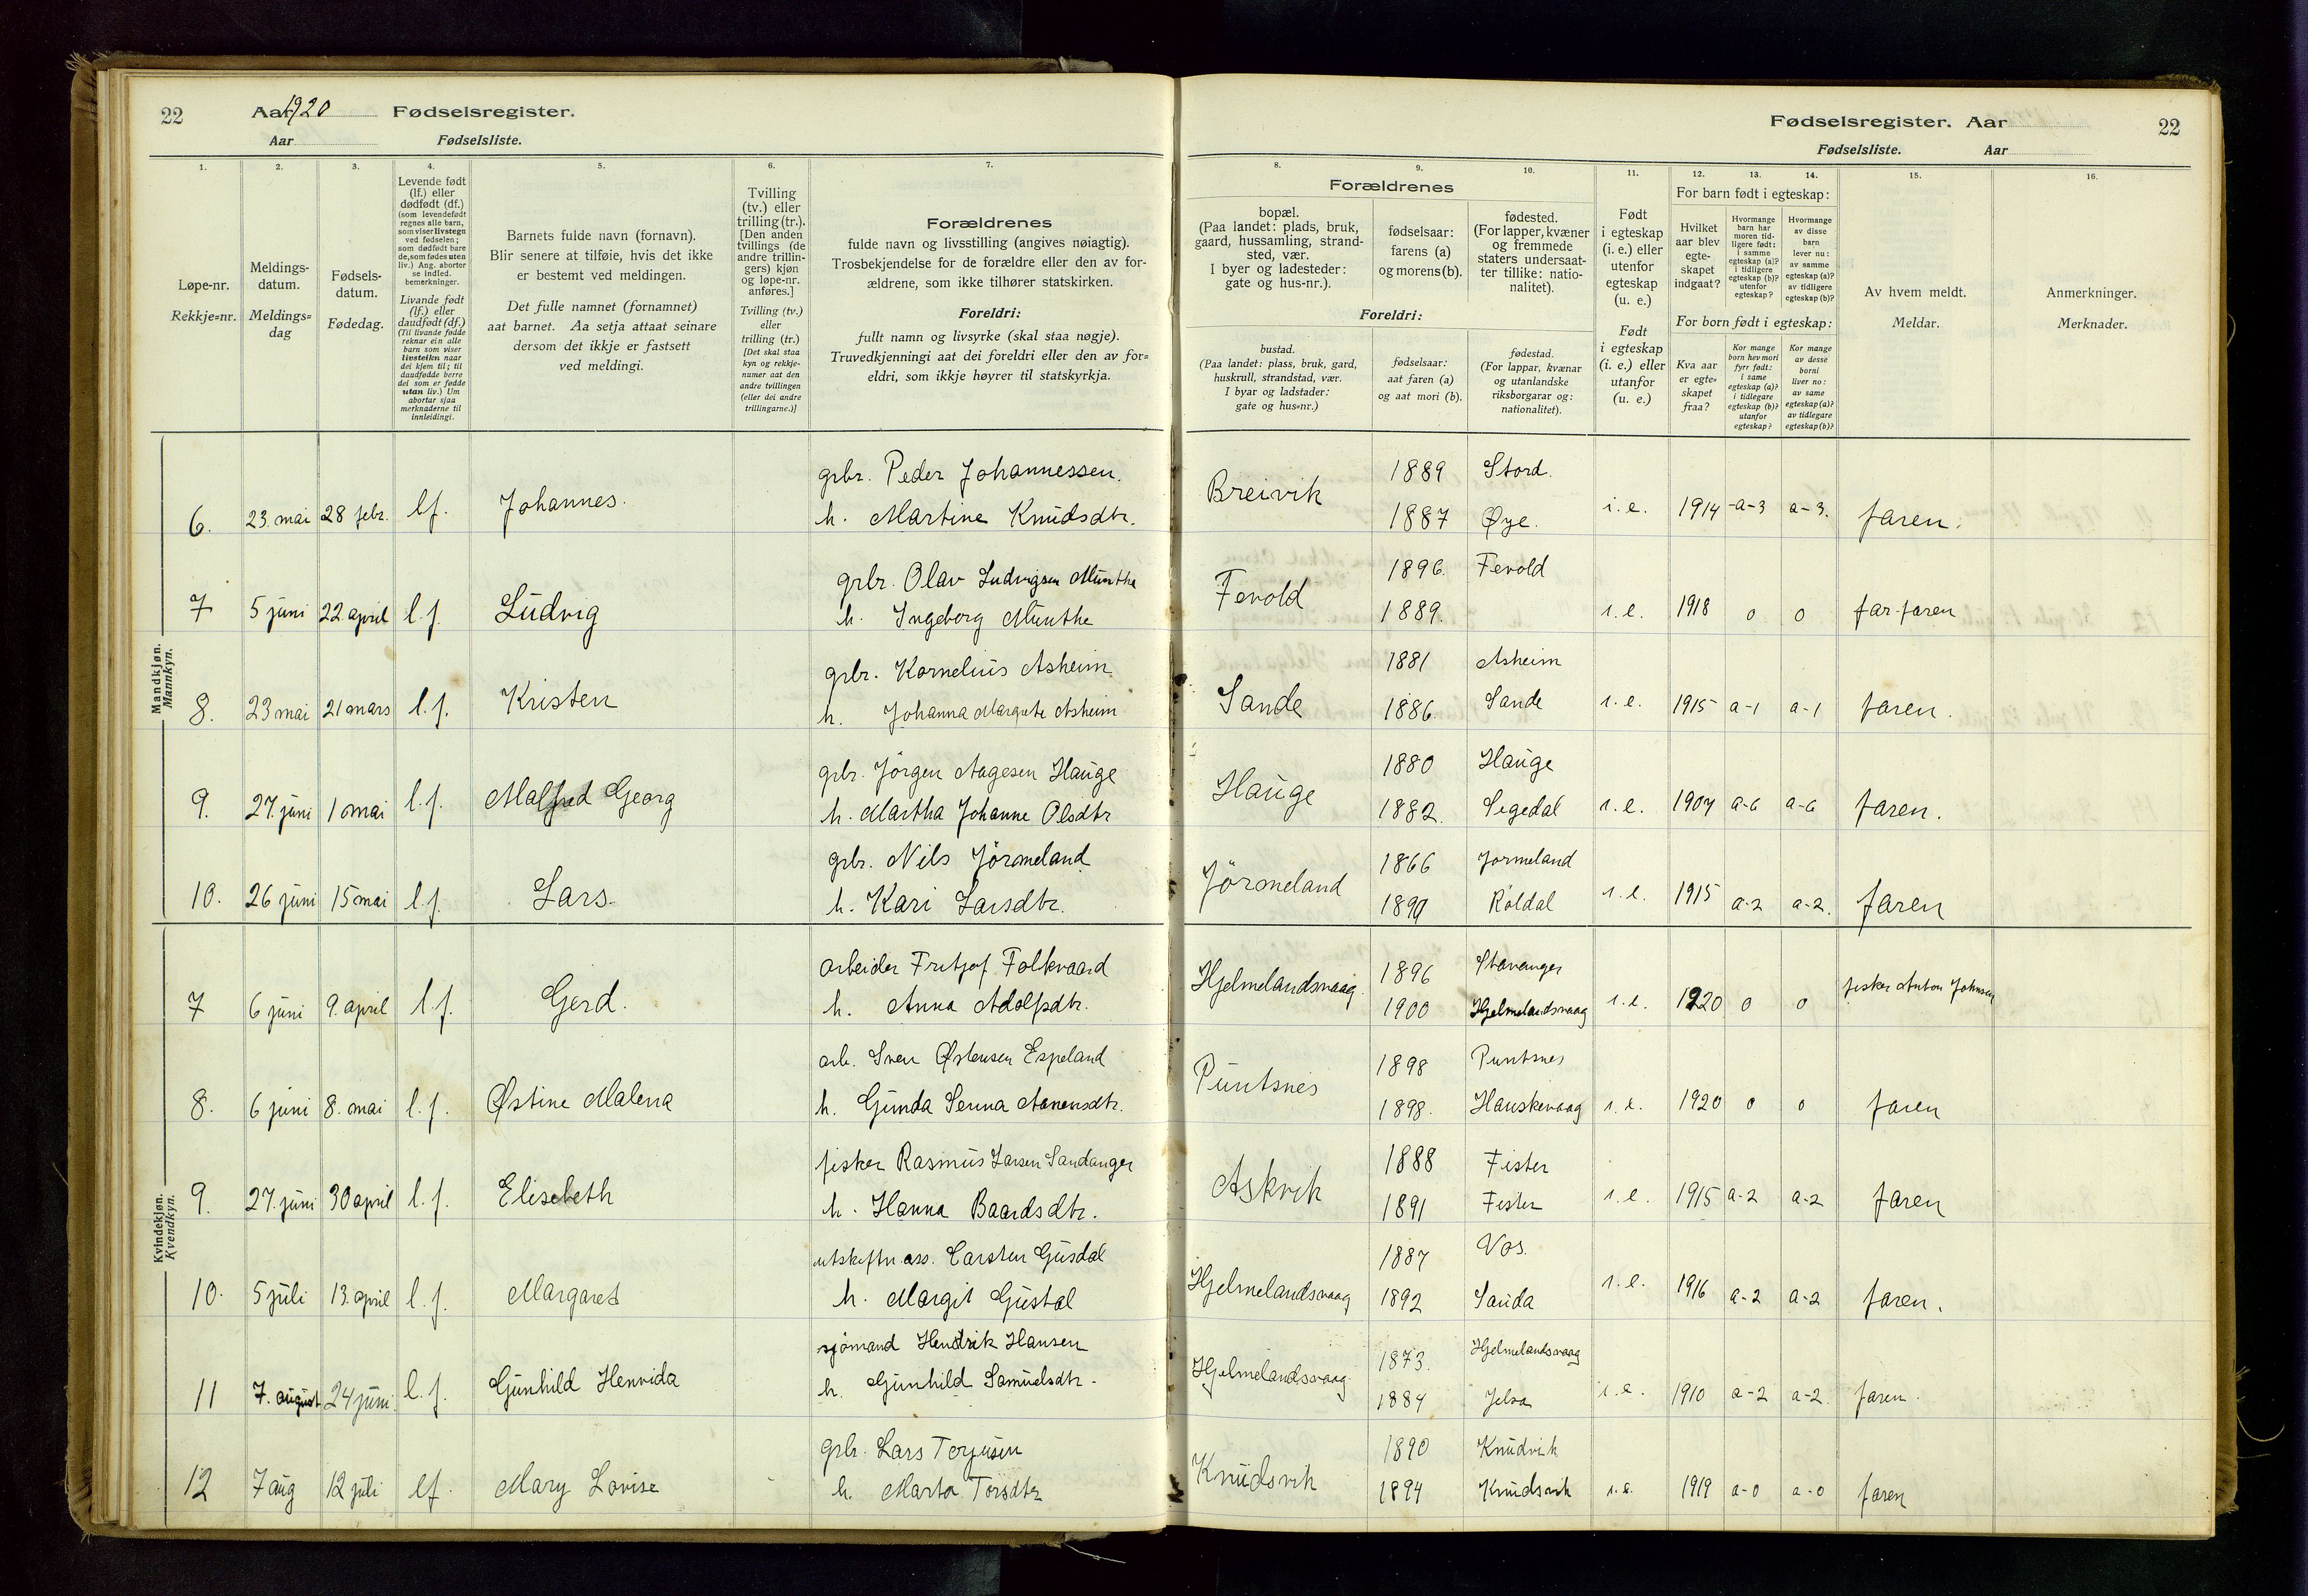 22 Aar 1920 Fødselsregister.
Aar Fødselsliste.
Fødselsregister. Aar 22
Fødselsliste. Aar
1. 2. 3. 4. 5. 6. 7.
Løpe-nr.
Rekkje=nr.
Meldings-
datum.
Meldings=
dag
Fødsels-
datum.
Fødedag.
Levende født
(lf.) eller
dødfødt (df.)
(som levendefødt
regnes alle barn,
som viser livstegn
ved fødselen;
som dødfødt bare
de, som fødes uten
liv.) Ang. aborter
se indled.
bemerkninger.
Livande født
(lf.) eller
daudfødt (df.)
(Til livande fødde
reknar ein alle
barn som viser
livsteikn naar
dei kjem til; til
daudfødde berre
dei som er fødde
utan liv.) Um
abortar sjaa
merknaderne til
innleidingi.
Barnets fulde navn (fornavn).
Blir senere at tilføie, hvis det ikke
er bestemt ved meldingen.
Det fulle namnet (fornamnet)
aat barnet. Aa setja attaat seinare
dersom det ikkje er fastsett
ved meldingi.
Tvilling
(tv.) eller
trilling (tr.).
[Den anden
tvillings (de
andre trillin-
gers) kjøn
og løpe-nr.
anføres.]
Tvilling (tv.)
eller
trilling (tr.)
[Det skal staa
kyn og rekkje-
numer aat den
andre tvillingen
(eller dei andre
trillingarne.)]
Forældrenes
fulde navn og livsstilling (angives nøiagtig).
Trosbekjendelse for de forældre eller den av for-
ældrene, som ikke tilhører statskirken.
Foreldri:
fullt namn og livsyrke (skal staa nøgje).
Truvedkjenningi aat dei foreldri eller den av for=
eldri, som ikkje høyrer til statskyrkja.
8. 9. 10. 11. 12. 13. 14. 15. 16.
Forældrenes
bopæl.
(Paa landet: plads, bruk,
gaard, hussamling, strand-
sted, vær.
I byer og ladesteder:
gate og hus-nr.).
fødselsaar:
farens (a)
og morens (b).
fødested.
(For lapper, kvæner
og fremmede
staters undersaat-
ter tillike: natio-
nalitet).
Foreldri:
bustad.
(Paa landet: plass, bruk, gard,
huskrull, strandstad, vær.
I byar og ladstader:
gate og hus=nr.)
fødselsaar:
aat faren (a)
og aat mori (b).
fødestad.
(For lappar, kvænar
og utanlandske
riksborgarar og:
nationalitet).
Født
i egteskap
(i. e.) eller
utenfor
egteskap
(u. e.)
Født
i egteskap
(i. e.) eller
utanfor
(u. e.)
For barn født i egteskap:
Hvilket
aar blev
egte-
skapet
indgaat?
Hvormange
barn har
moren tid-
ligere født:
i samme
egteskap (a)?
i tidligere
egteskap (b)?
utenfor
egteskap?
Hvormange
av disse
barn
lever nu:
av samme
egteskap (a)?
av tidligere
egteskap (b)?
For born født i egteskap:
Kva aar
er egte=
skapet
fraa?
Kor mange
born hev mori
fyrr født:
i same
egteskap (a)?
i tidlegare
egteskap (b)?
utanfor
egteskap?
Kor mange
av desse
borni
liver no:
av same
egteskap (a)?
av tidlegare
egteskap (b)?
Av hvem meldt.
Meldar.
Anmerkninger.
Merknader.
Mandkjøn.
Mannkyn.
grbr. Peder Johannessen. 1889 Stord.
6. 23. mai 28 febr. lf. Johannes. h. Martine Knudsdtr. Breivik 1887 Øye. i. e. 1914 -a-3 a-3. faren.
grbr. Olav Ludvigsen Munthe 1896. Fevold
7 5 juni 22. april l. f. Ludvig h. Ingeborg Munthe Fevold 1889. i. e. 1918 0 0 far-faren
grbr. Kornelius Asheim 1881 Asheim
8. 23 mai 21 mars l. f. Kristen h. Johanna Margrete Asheim Sande 1886. Sande i. e. 1915 a-1 a-1 faren.
grbr. Jörgen Aagesen Hauge 1880 Hauge
9. 27. juni 1 mai l. f. Malfred Georg h. Martha Johanne Olsdtr Hauge 1882. Segedal i. e. 1907 a-6 a-6 faren.
grbr. Nils Jörmeland 1866 Jormeland
10. 26 juni 15 mai l. f. Lars. h. Kari Larsdtr. Jörmeland 1890 Röldal i. e. 1915 a-2 a-2. faren
Kvindekjøn.
Kvendkyn.
arbeider Fritjof Folkvaard 1896 Stavanger
7 6 juni 9. april l. f. Gerd. h. Anna Adolfsdtr. Hjelmelandsvaag 1900 Hjelmelandsvaag i. e. 1920 0 0 fisker Anton Johnsen
arb. Sven Østensen Espeland 1898 Puntsnes
8. 6 juni 8. mai l. f. Østine Malena h. Gunda Serina Aanensdtr. Puntsnes 1898. Hauskevaag i. e. 1920 0 0 faren
fisker Rasmus Larsen Sandanger 1888 Fister
9. 27. juni 30 april l. f. Elisebeth h. Hanna Baardsdtr. Askvik 1891 Fister i. e. 1915 a-2 a-2 faren
utskiftn. ass. Carsten Gusdal 1887 Vos.
10. 5 juli 13. april l. f. Margaret h. Margit Gustal Hjelmelandsvaag 1892 Sauda i. e. 1916 a-2 a-2 faren.
sjömand Hendrik Hansen 1873. Hjelmelandsvaag
11 7. august 24 juni. l. f. Gunhild Henvida h. Gunhild Samuelsdtr. Hjelmelandsvaag. 1884 Jelsa i. e. 1910 a-2 a-2. faren.
grbr. Lars Torjusen 1890 Knudvik
12 7 aug 12 juli lf. Mary Lovise h. Marta Torsdtr Knudsvik 1894 Knudsvik i. e. 1919 a-0 a-0 faren